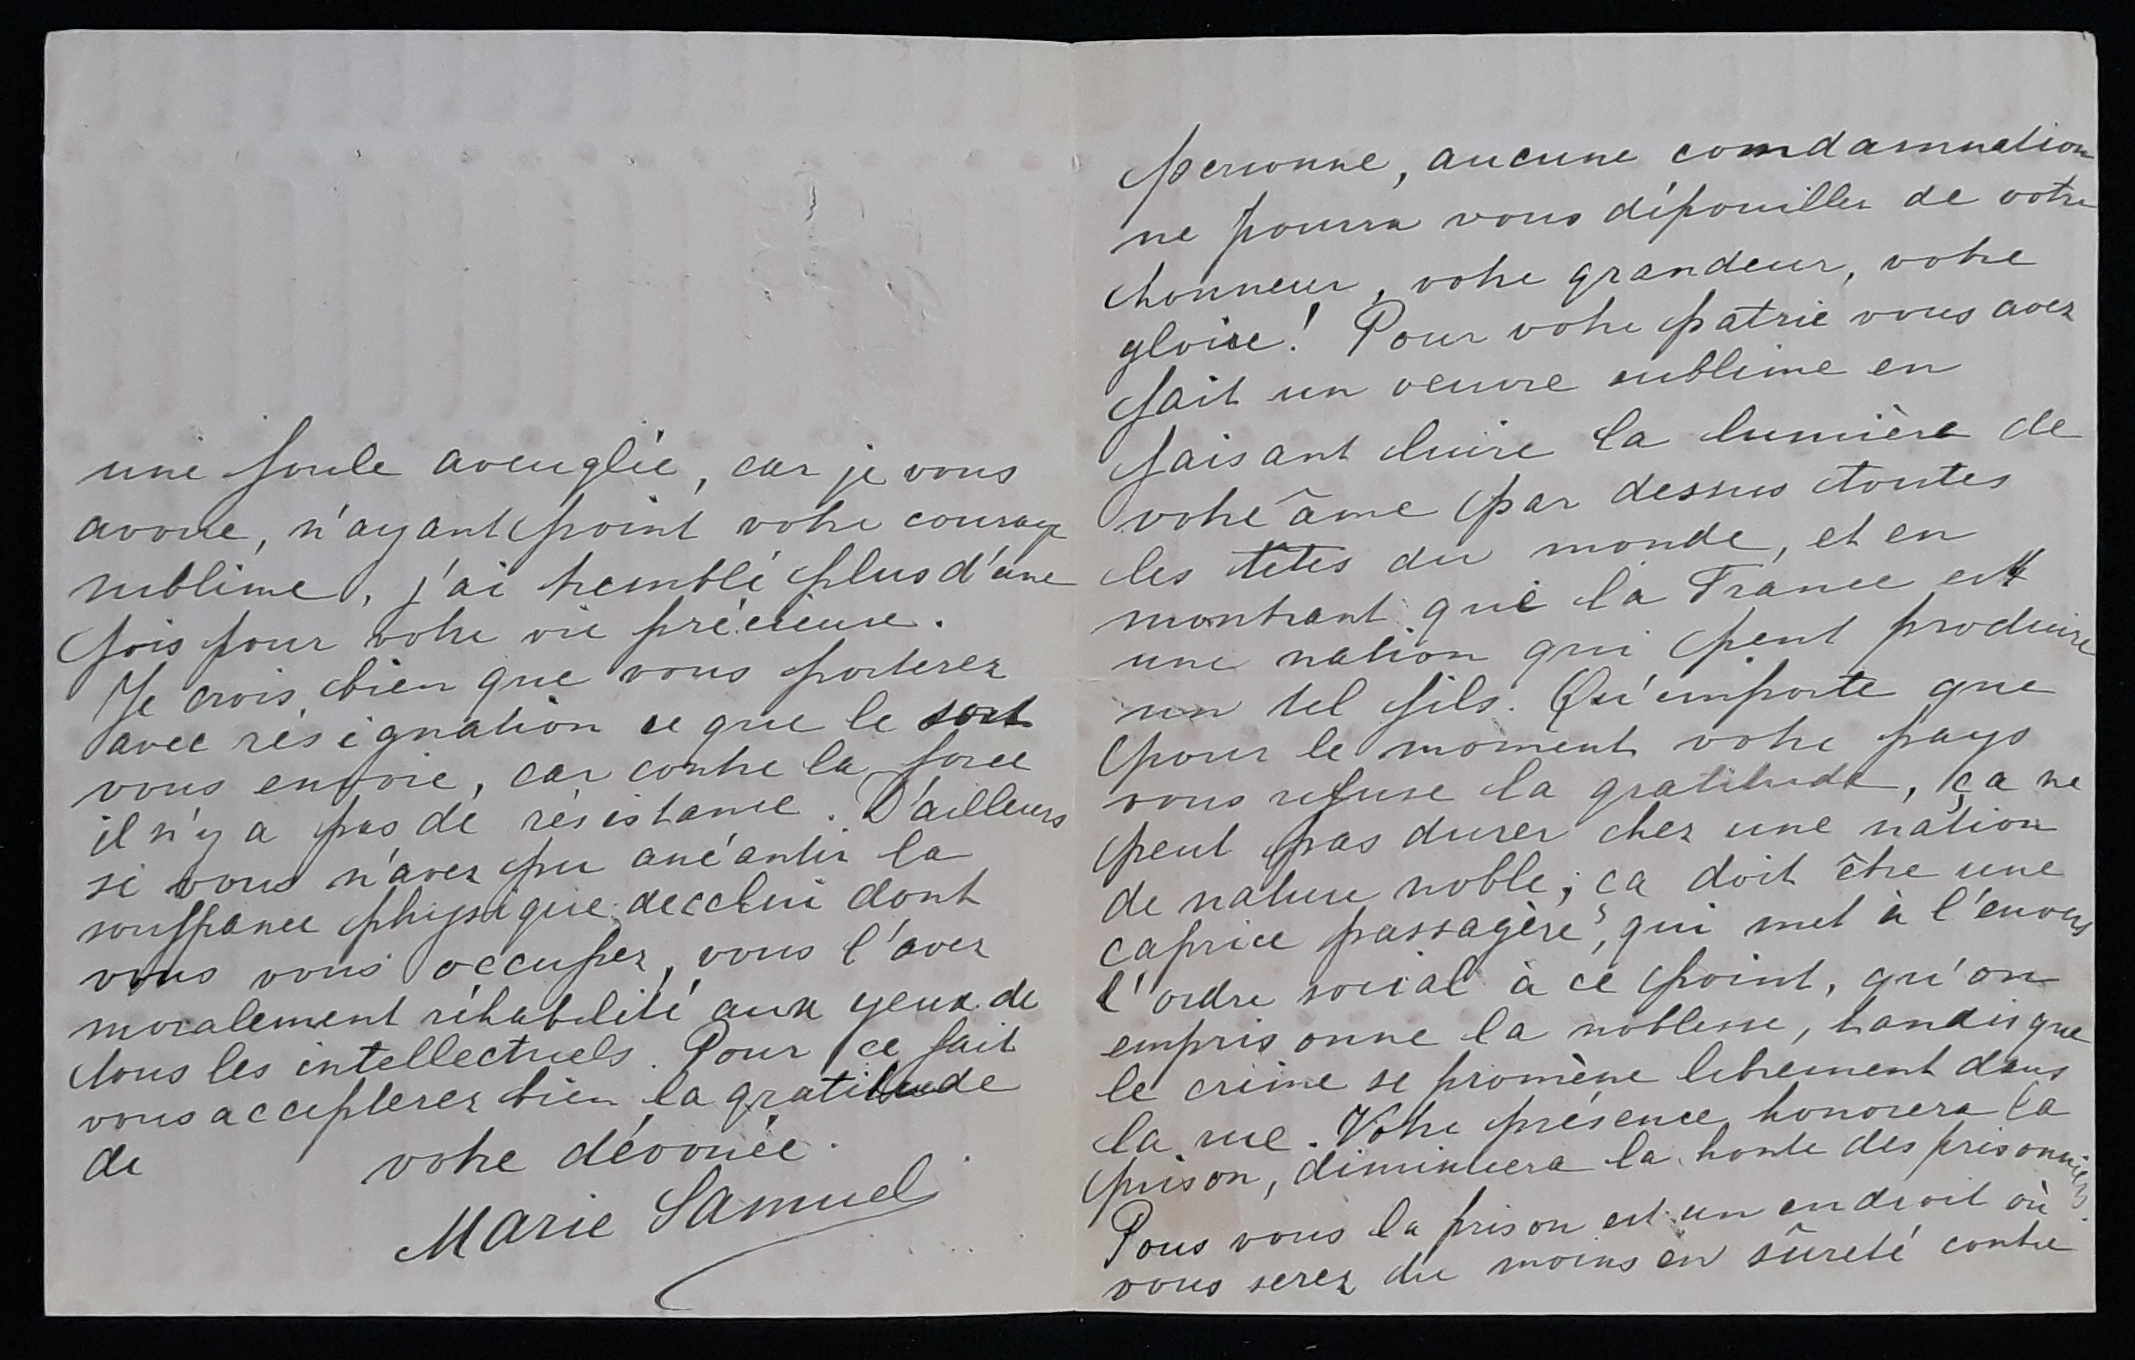 personne, aucune comdamnation
ne pourra vous dépouiller de votre
honneur, votre grandeur, votre
gloire! Pour votre patrie vous avez
fait un oeuvre sublime en
faisant luire la lumière de
votre âme par dessus toutes
les têtes du monde, et en
montrant que la France est
une nation qui peut produire
un tel fils. Qu'importe que
pour le moment votre pays
vous refuse la gratitude, ça ne
peut pas durer chez une nation
de nature noble; ça doit être une
caprice passagère, qui met à l'envers
l'ordre social à ce point, qu'on
emprisonne la noblesse, tandisque
le crime se promène librement dans
la rue. Votre présence honorera la
prison, diminuera la honte des prisonniers.
Pous vous la prison est un endroit où
vous serez du moins en sûreté contre
une foule aveuglée, car je vous
avoue, n'ayant point votre courage
sublime, j'ai tremblé plus d'une
fois pour votre vie précieuse.
Je crois bien que vous porterez
avec résignation ce que le sort
vous envoie, car contre la force
il n'y a pas de résistance. D'ailleurs
si vous n'avez pu anéantir la
souffrance physique de celui dont
vous vous occupez, vous l'avez
moralement réhabilité aux yeux de
tous les intellectuels. Pour ce fait
vous accepterez bien la gratitude
de votre dévouée.
Marie Samuel